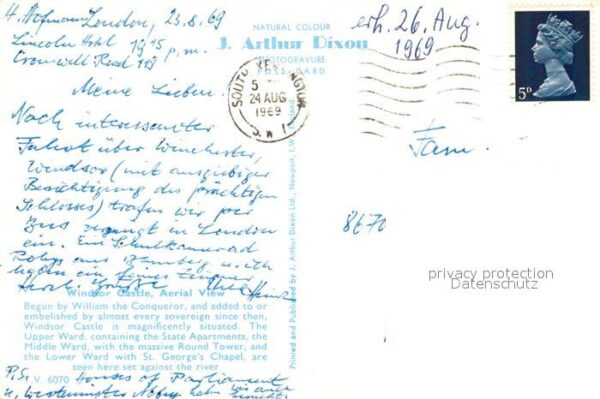 H. Hofmann London, 23.8.69
Lincoln Hotel 19 15 p.m.
Cromwell Road 119
Meine Lieben.
Nach interessanter
Fahrt über Winchester,
Windsor (mit ausgiebiger
Besichtigung des prächtigen
Schlosses) trafen wir per
Bus vergnügt in London
ein. Ein Schulkamerad
aus Bamberg u. ich
ein feines Zimmer
Herzl. Grüsse
NATURAL COLOUR
J. Arthur Dixon
PHOTOGRAVURE
POST CARD
erh. 26. Aug.
1969
SOUTH KENSINGTON
5
24 AUG
1969
S.W.7
5D
Fam.
8670
privacy protection
Datenschutz
Printed and Published by J. Arthur Dixon Ltd., Newport, I.W., England
Windsor Castle, Aerial View
Begun by William the Conqueror, and added to or
embelished by almost every sovereign since then,
Windsor Castle is magnificently situated. The
Upper Ward, containing the State Apartments, the
Middle Ward, with the massive Round Tower, and
the Lower Ward with St. George's Chapel, are
seen here set against the river
V. 6070
P.S. Houses of Parliament
u. Westminster Abbey